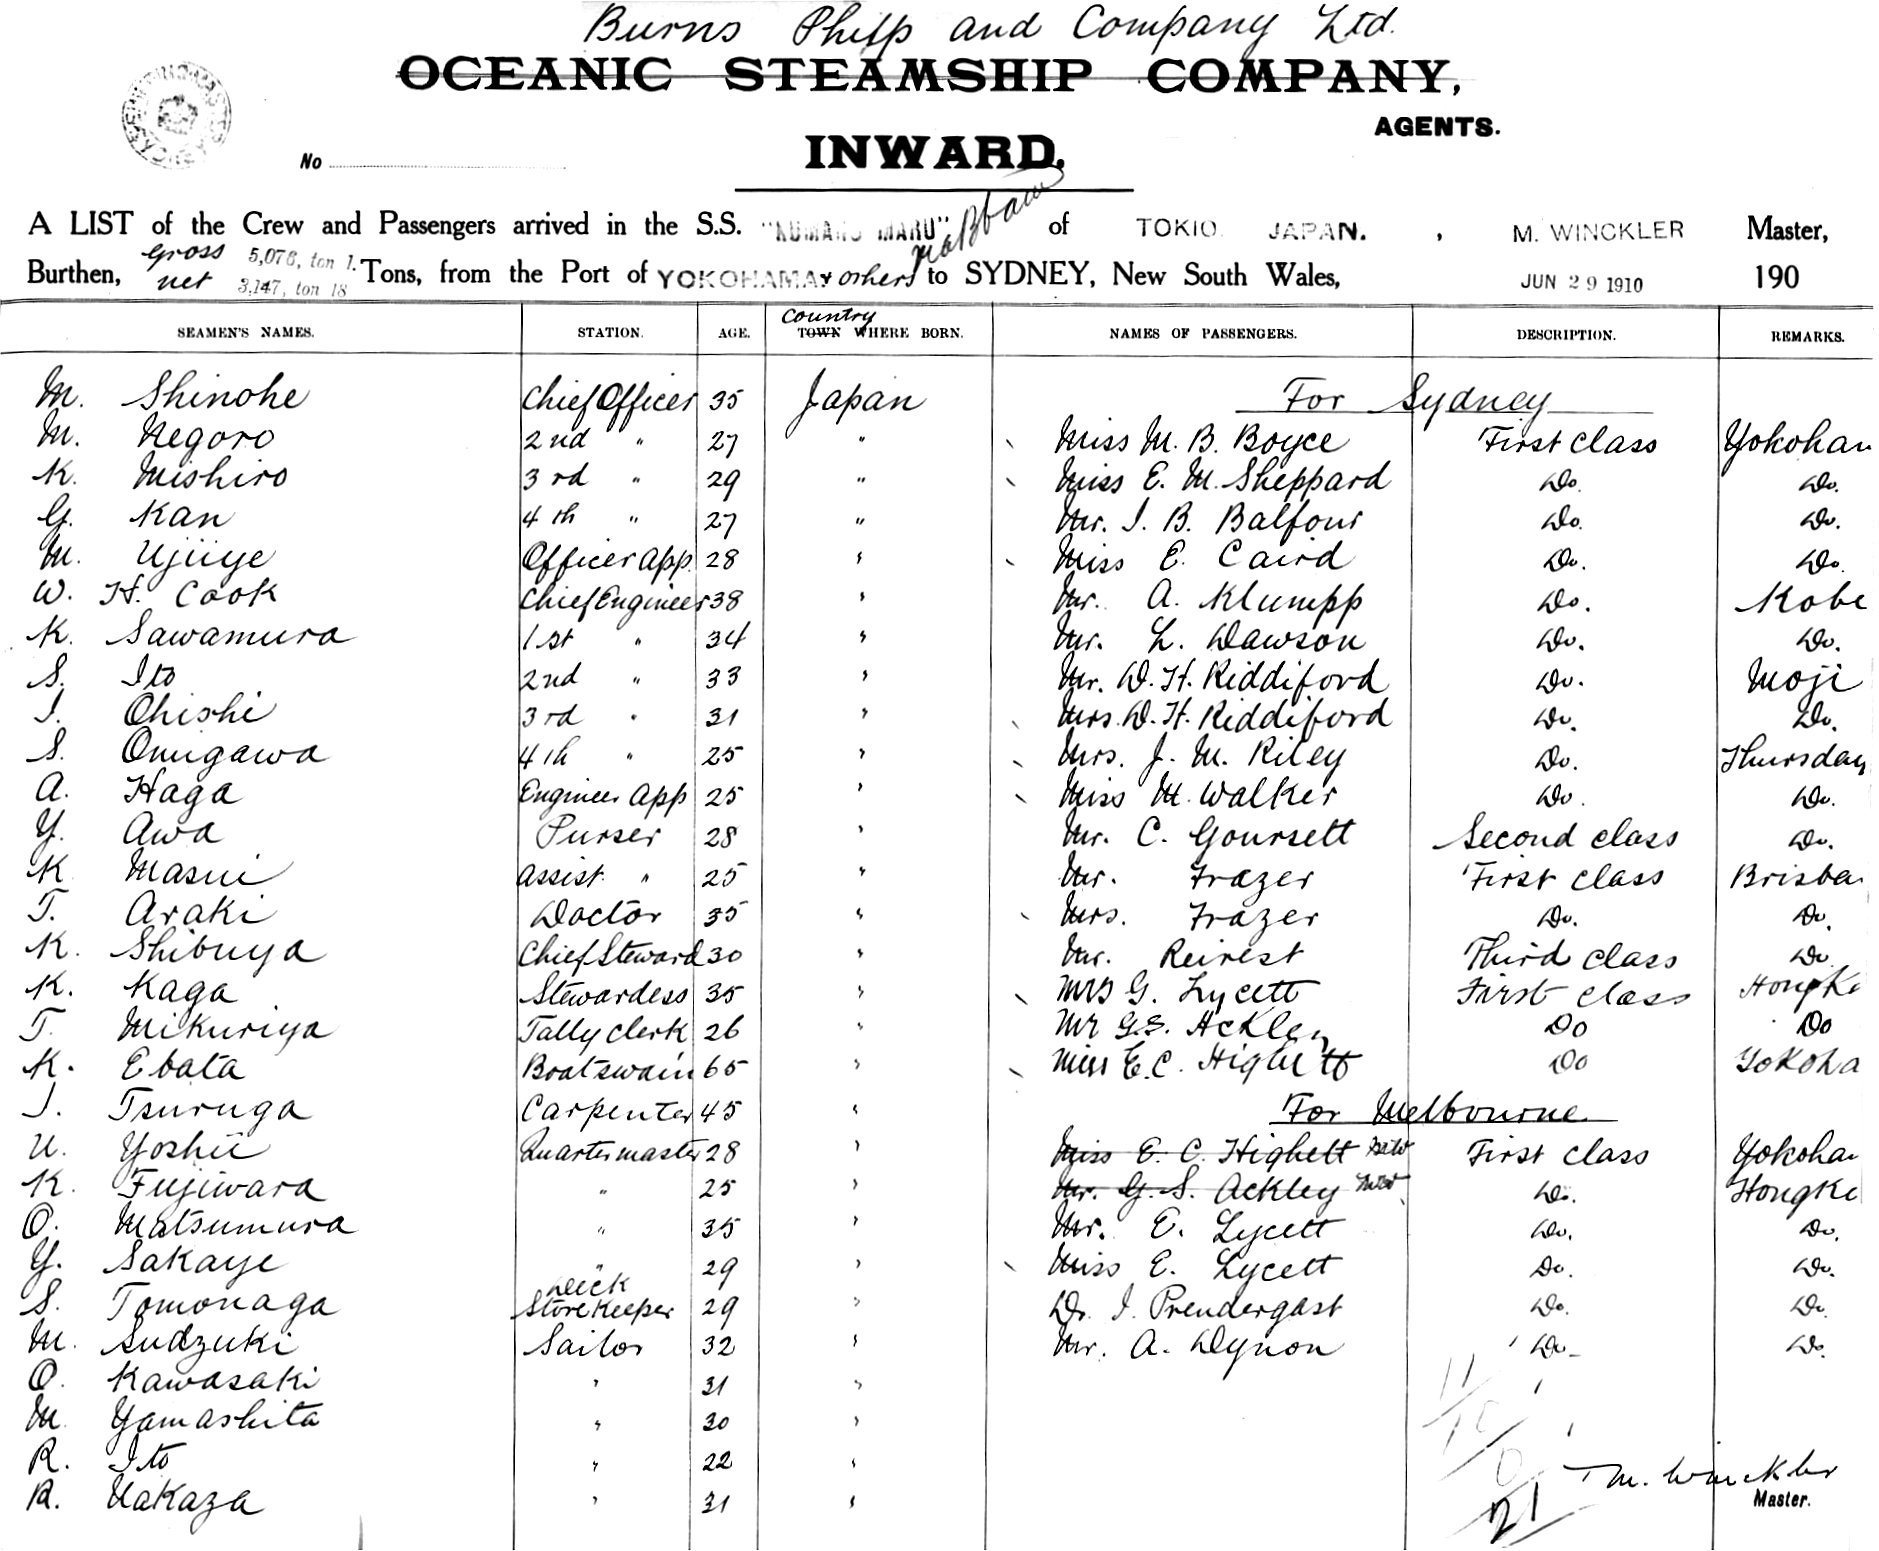 Burns Philp and Company Ltd.
OCEANIC STEAMSHIP COMPANY,
AGENTS.
No
INWARD.
A LIST of the Crew and Passengers arrived in the S.S. "KUMANO MARU" of TOKIO JAPAN. , M. WINCKLER Master,
Burthen, gross 5,076, ton 1. net 3,147, ton 18 Tons, from the Port of YOKOHAMA & others to SYDNEY, New South Wales, JUN 29 1910 190
SEAMEN'S NAMES. STATION. AGE. Country TOWN WHERE BORN. NAMES OF PASSENGERS. DESCRIPTION. REMARKS.
M. Shinohe Chief Officer 35 Japan For Sydney
M. Negoro 2nd " 27 " Miss M. B. Boyce First class Yokoham
K. Mishiro 3rd " 29 " Miss E. M. Sheppard Do. Do.
G. Kan 4th " 27 " Mr. J. B. Balfour Do. Do.
M. Ujiiye Officer App. 28 " Miss E. Caird Do. Do.
W. H. Cook Chief Engineer 38 " Mr. A. Klumpp Do. Kobe
K. Sawamura 1st " 34 " Mr. L. Dawson Do. Do.
S. Ito 2nd " 33 " Mr. D. H. Riddiford Do. Moji
J. Ohishi 3rd " 31 " Mrs. D. H. Riddiford Do. Do.
S. Omigawa 4th " 25 " Mrs. J. M. Riley Do. Thursday
A. Haga Engineer App 25 " Miss M. Walker Do. Do.
Y. Awa Purser 28 " Mr. C. Goursett Second class Do.
K Masui Assist. " 25 " Mr. Frazer First class Brisba
T. Araki Doctor 35 " Mrs. Frazer Do. Do.
K. Shibuya Chief Steward 30 " Mr. Reirest Third class Do
K. Kaga Stewardess 35 " Mrs G. Lycett First class HongKo
T. Mikuriya Tally clerk 26 " Mr G.S. Ackley Do Do
K. Ebata Boatswain 65 " Miss E. C. Highett Do Yokoha
J. Tsuruga Carpenter 45 " For Melbourne
U. Yoshii Quartermaster 28 " Miss E. C. Highett First class Yokoham
K. Fujiwara " 25 " Mr. G. S. Ackley Do. HongKo
O. Matsumura " 35 " Mr. E. Lycett Do. Do.
Y. Sakaye " 29 " Miss E. Lycett Do. Do.
S. Tomonaga Deck Storekeeper 29 " Dr. J. Prendergast Do. Do.
M. Sudzuki Sailor 32 " Mr. A. Dynon Do. Do.
O. Kawasaki " 31 "
M. Yamashita " 30 "
R. Ito " 22 "
R. Nakaza " 31 "
11
10
0
21
M. Winckler
Master.